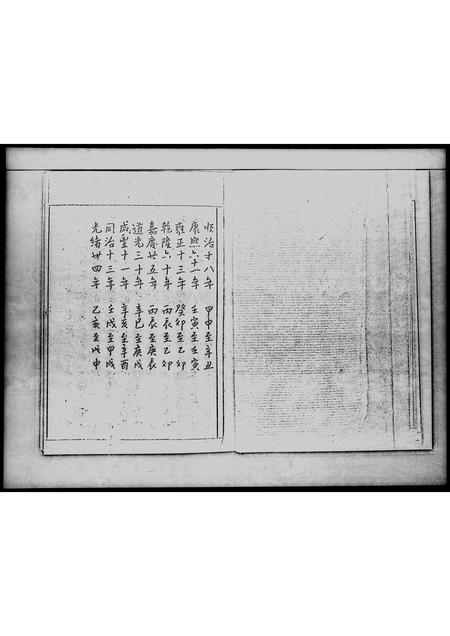 順治十八年 甲申至辛丑
康熙六十一年 壬寅至壬寅
雍正十三年 癸卯至乙卯
乾隆六十年 丙辰至乙卯
嘉慶廿五年 丙辰至庚辰
道光三十年 辛巳至庚戌
咸豐十一年 辛亥至辛酉
同治十三年 壬戌至甲戌
光緒卅四年 乙亥至戊申